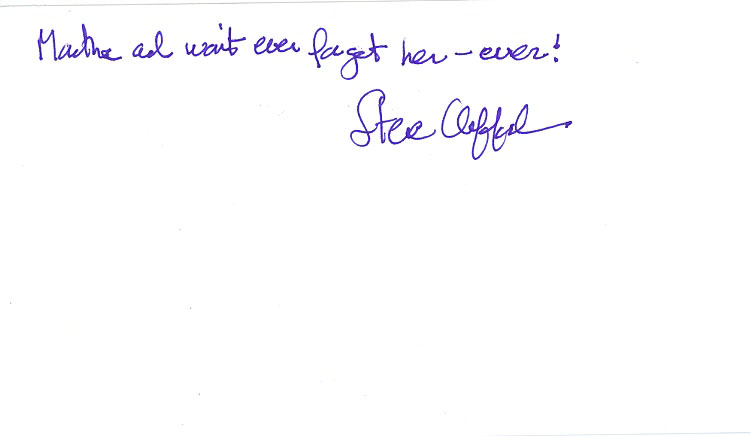 Martha and won't ever forget her – ever!
Steve Clifford